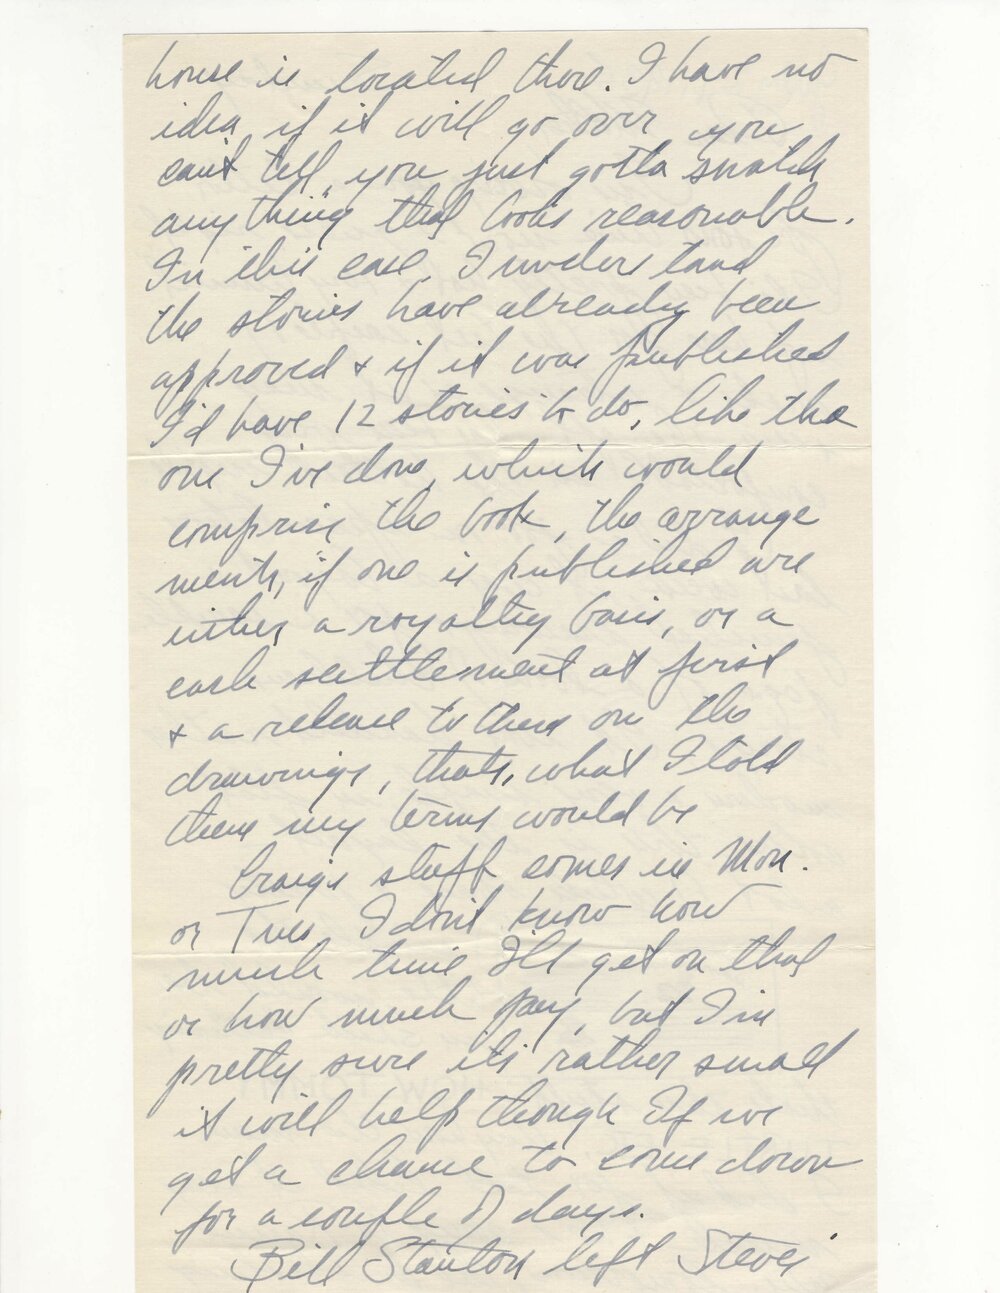 house is located there. I have no
idea if it will go over, you
can't tell, you just gotta snatch
anything that looks reasonable.
In this case, I understand
the stories have already been
approved & if it was published
I'd have 12 stories to do, like the
one I've done, which would
comprise the book, the arrange
ments, if one is published are
either a royalty basis, or a
cash settlement at first
& a release to them on the
drawings, thats, what I told
them my terms would be
Craigs stuff comes in Mon.
or Tues I don't know how
much time I'll get on that
or how much pay, but I'm
pretty sure its rather small
it will help though If we
get a chance to come down
for a couple of days.
Bill Stanton left Steves'